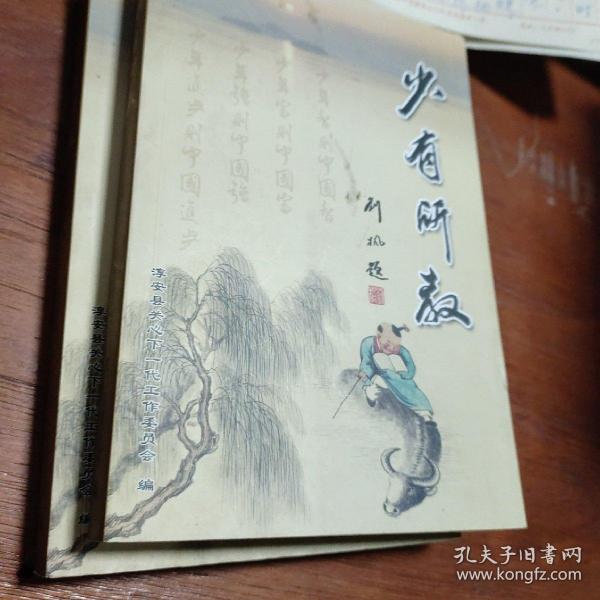 少有所教
刘枫题
少年智则中国智
少年富则中国富
少年强则中国强
少年进步则中国进步
淳安县关心下一代工作委员会 编
淳安县关心下一代工作委员会 编
孔夫子旧书网
www.kongfz.com